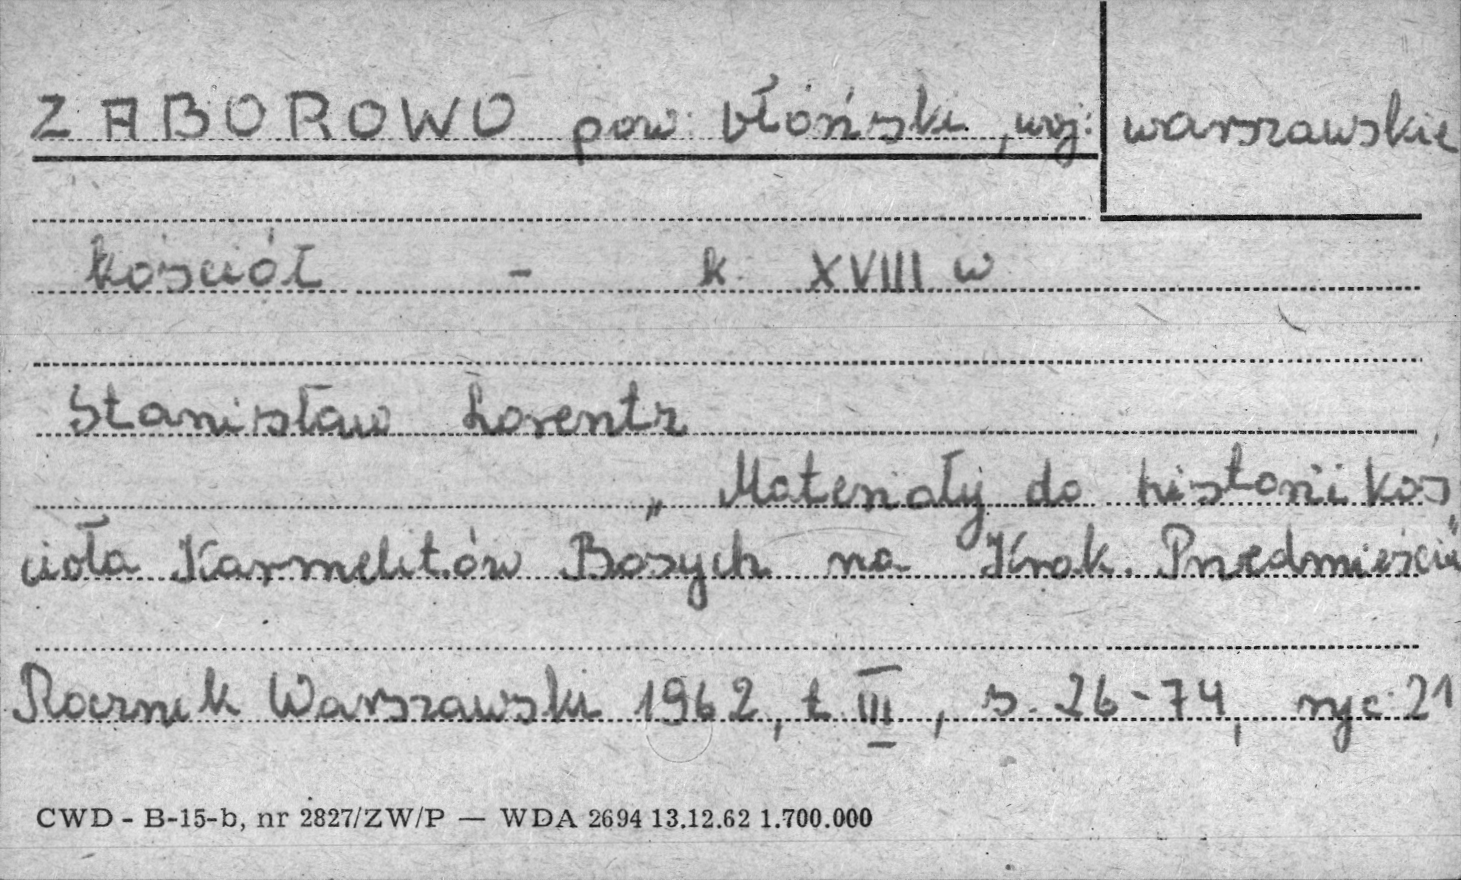 ZABOROWO pow. błoński, woj: warszawskie
kościół - k. XVIII w
Stanisław Lorentz
„Materiały do historii koś
cioła Karmelitów Bosych na Krak. Przedmieściu"
Rocznik Warszawski 1962, t III, s. 26-74, ryc. 21
CWD - B-15-b, nr 2827/ZW/P — WDA 2694 13.12.62 1.700.000